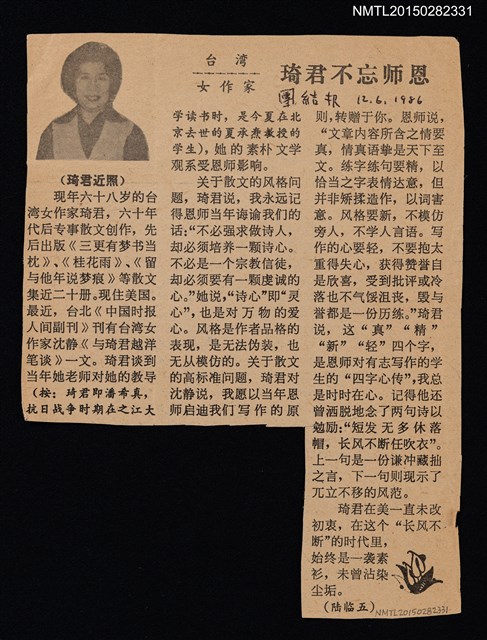 NMTL20150282331
台湾
女作家
琦君不忘师恩
團結報 12.6.1986
(琦君近照)
现年六十八岁的台
湾女作家琦君，六十年
代后专事散文创作，先
后出版《三更有梦书当
枕》、《桂花雨》、《留
与他年说梦痕》等散文
集近二十册。现住美国。
最近，台北《中国时报
人间副刊》刊有台湾女
作家沈静《与琦君越洋
笔谈》一文。琦君谈到
当年她老师对她的教导
(按：琦君即潘希真，
抗日战争时期在之江大
学读书时，是今夏在北
京去世的夏承焘教授的
学生)，她的素朴文学
观系受恩师影响。
关于散文的风格问
题，琦君说，我永远记
得恩师当年诲谕我们的
话：“不必强求做诗人，
却必须培养一颗诗心。
不必是一个宗教信徒，
却必须要有一颗虔诚的
心。”她说，“诗心”即“灵
心”，也是对万物的爱
心。风格是作者品格的
表现，是无法伪装，也
无从模仿的。关于散文
的高标准问题，琦君对
沈静说，我愿以当年恩
师启迪我们写作的原
则，转赠于你。恩师说，
“文章内容所含之情要
真，情真语挚是天下至
文。练字练句要精，以
恰当之字表情达意，但
并非矫揉造作，以词害
意。风格要新，不模仿
旁人，不学人言语。写
作的心要轻，不要抱太
重得失心，获得赞誉自
是欣喜，受到批评或冷
落也不气馁沮丧，毁与
誉都是一份历练。”琦君
说，这“真”“精”
“新”“轻”四个字，
是恩师对有志写作的学
生的“四字心传”，我总
是时时在心。记得他还
曾洒脱地念了两句诗以
勉励：“短发无多休落
帽，长风不断任吹衣”。
上一句是一份谦冲藏拙
之言，下一句则现示了
兀立不移的风范。
琦君在美一直未改
初衷，在这个“长风不
断”的时代里，
始终是一袭素
衫，未曾沾染
尘垢。
(陆临五)
NMTL20150282331